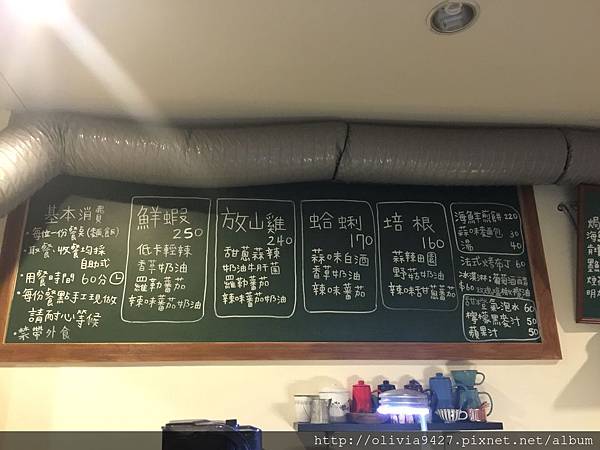 基本消費
・每位一份餐點(麵飯)
・取餐、收餐均採
自助式
・用餐時間 60分
・每份餐點手工現做
請耐心等候
・禁帶外食
鮮蝦
250
低卡輕辣
香芋奶油
羅勒蕃茄
辣味蕃茄奶油
放山雞
240
甜蔥蒜辣
奶油牛肝菌
羅勒蕃茄
辣味蕃茄奶油
蛤蜊
170
蒜味白酒
香芋奶油
辣味蕃茄
培根
160
蒜辣
野菇奶油
辣味甜蔥蕃茄
海鮮煎餅 220
蒜味麵包 30
湯 40
法式烤布丁 60
冰淇淋:葡萄酒
$60
氣泡水 60
檸檬黑麥汁 50
蘋果汁 50
http://olivia9427.pixnet.net/album